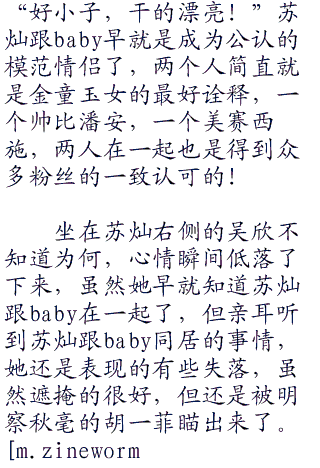 “好小子，干的漂亮！”苏
灿跟baby早就是成为公认的
模范情侣了，两个人简直就
是金童玉女的最好诠释，一
个帅比潘安，一个美赛西
施，两人在一起也是得到众
多粉丝的一致认可的！
坐在苏灿右侧的吴欣不
知道为何，心情瞬间低落了
下来，虽然她早就知道苏灿
跟baby在一起了，但亲耳听
到苏灿跟baby同居的事情，
她还是表现的有些失落，虽
然遮掩的很好，但还是被明
察秋毫的胡一菲瞄出来了。
[m.zineworm